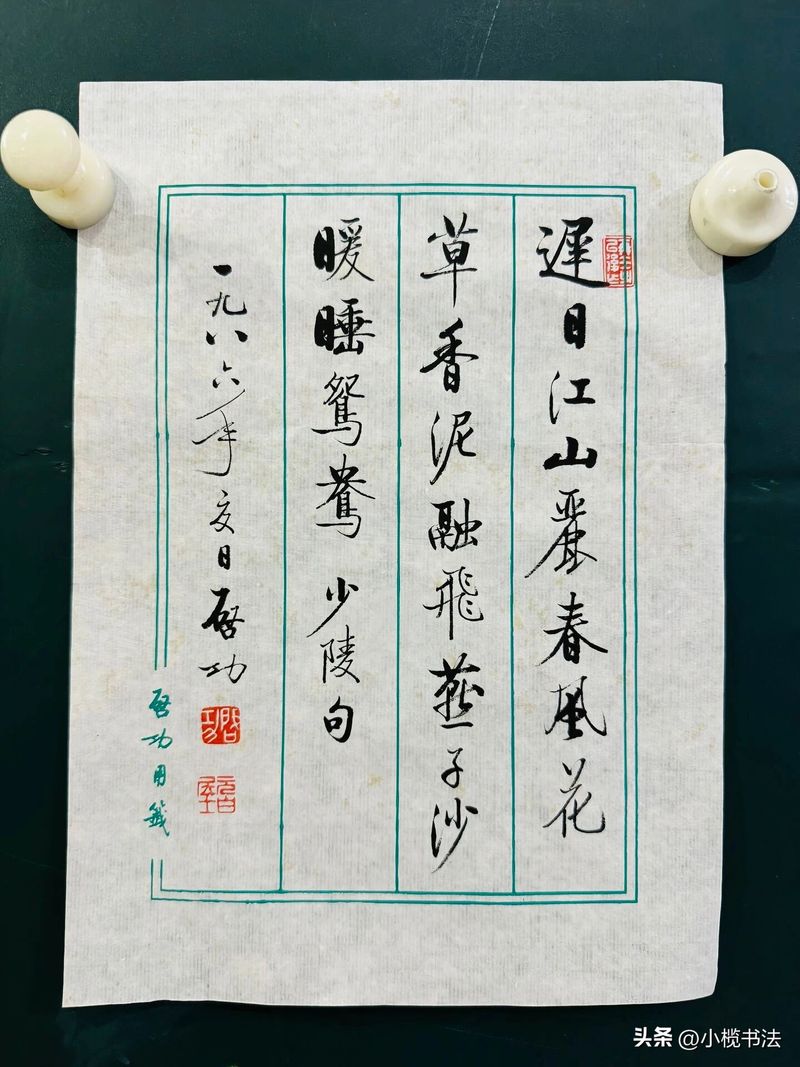 遲日江山麗春風花
草香泥融飛燕子沙
暖睡鴛鴦 少陵句
一九八六年夏日啓功
啓功用籤
頭条 @小榄书法